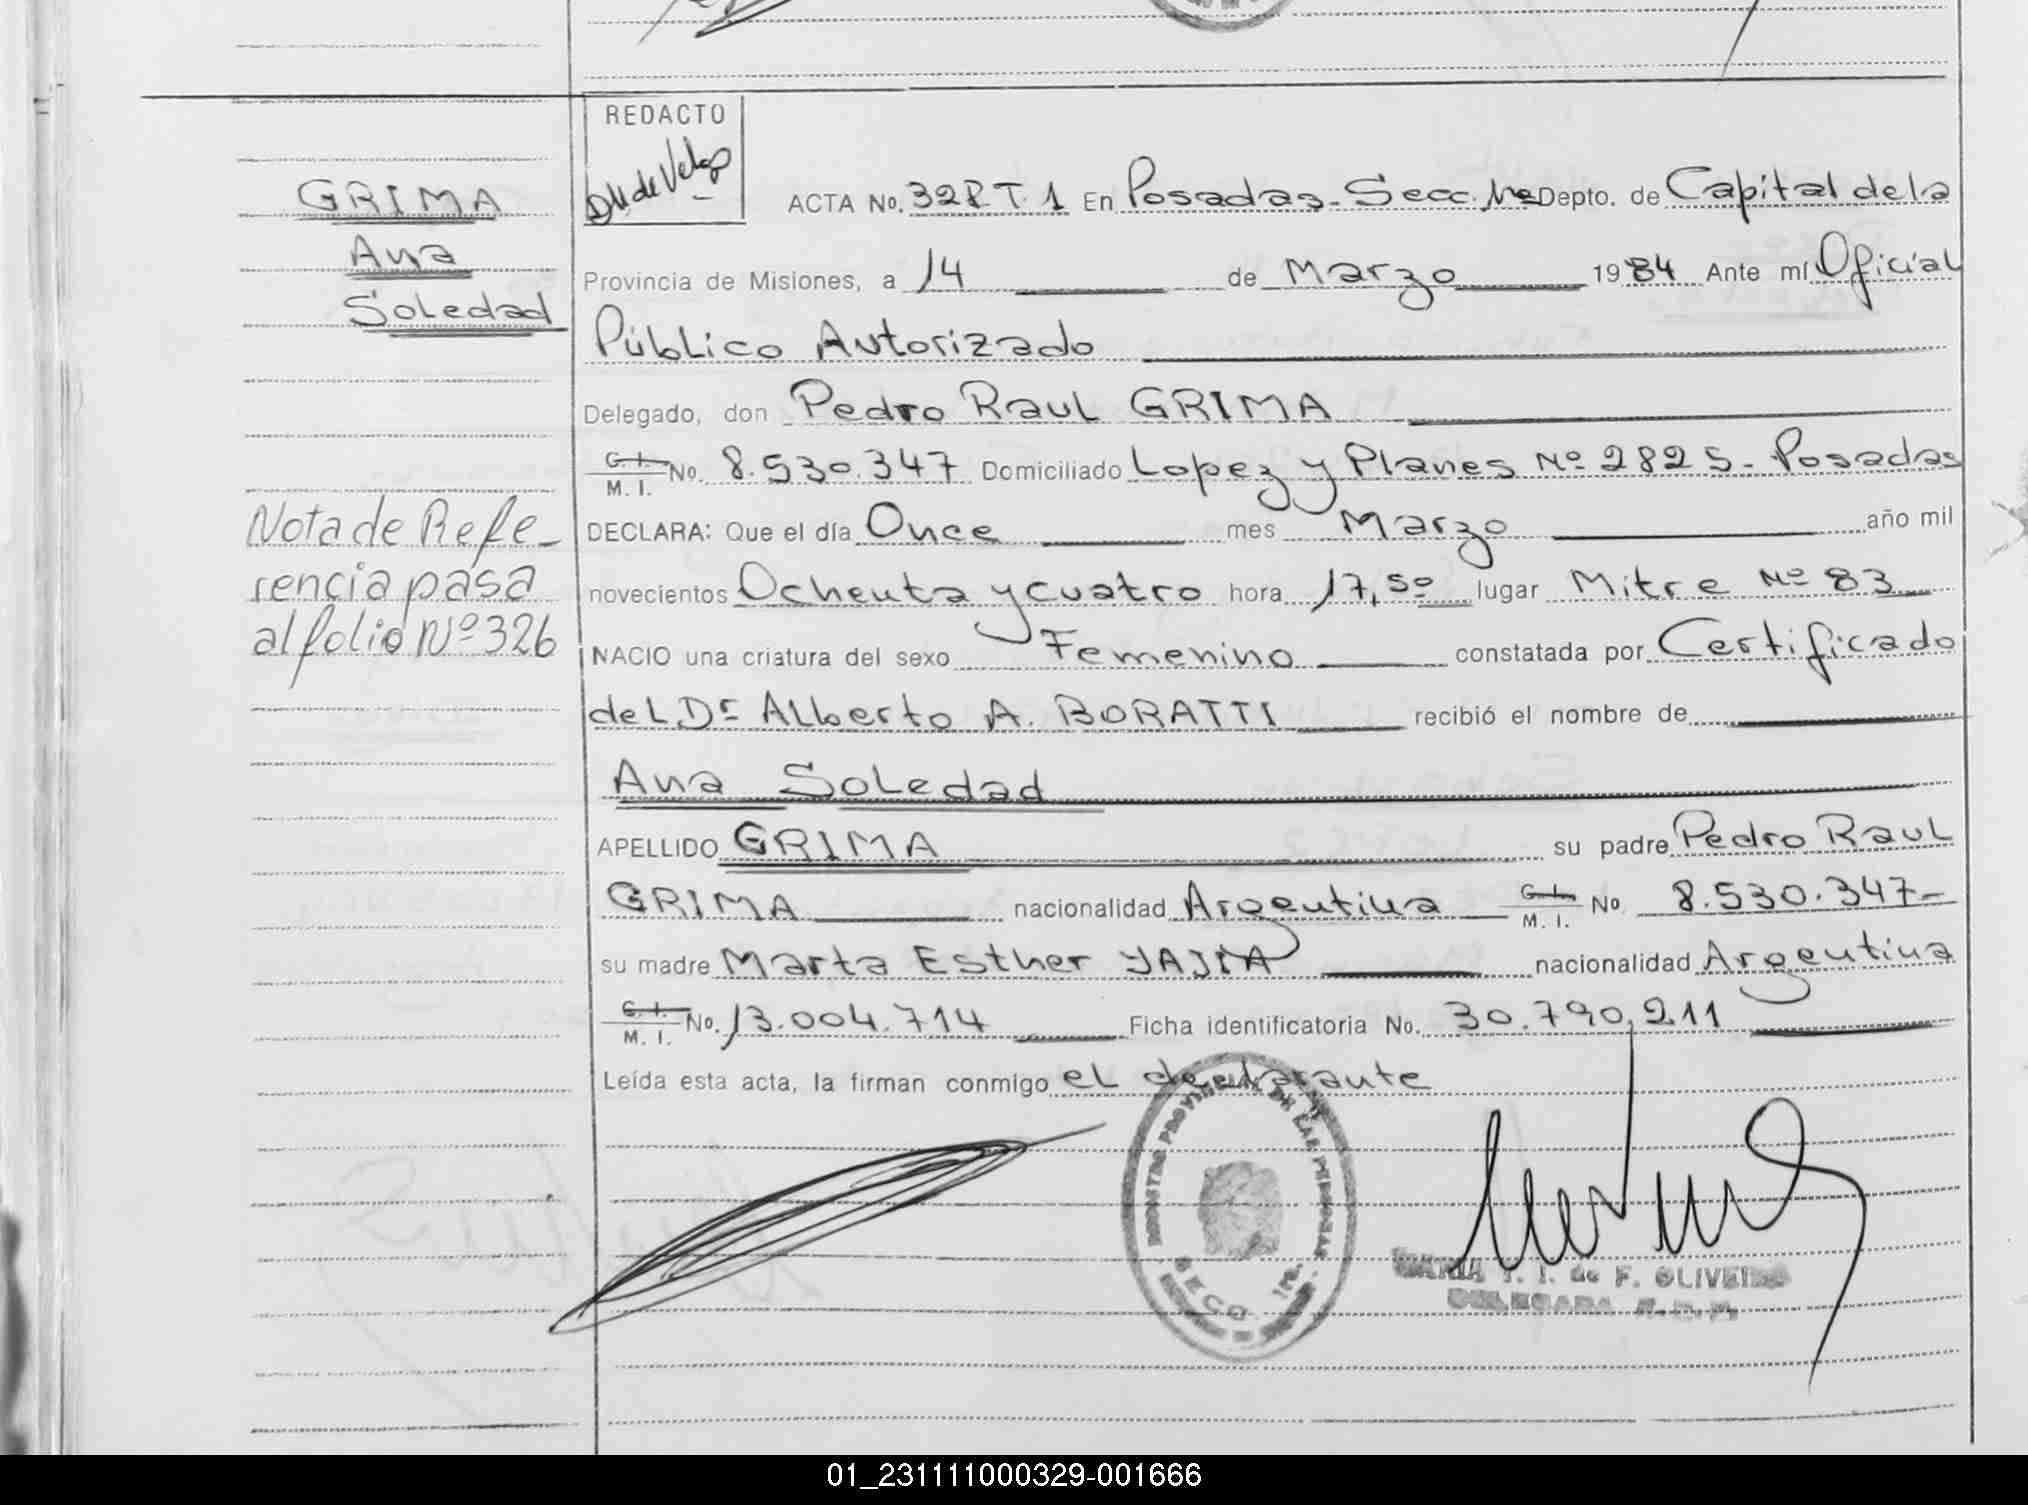 REDACTO
GRIMA
Ana
Soledad
ACTA No. 328 T. 1 En Posadas - Secc. 1ra Depto. de Capital de la
Provincia de Misiones, a 14 de Marzo 1984 Ante mí Oficial
Público Autorizado
Delegado, don Pedro Raul GRIMA
C. I. M. I. No. 8.530.347 Domiciliado Lopez y Planes Nº 2825 - Posadas
DECLARA: Que el día Once mes Marzo año mil
novecientos Ochenta y cuatro hora 17,50 lugar Mitre Nº 83
NACIO una criatura del sexo Femenino constatada por Certificado
del Dr Alberto A. BORATTI recibió el nombre de
Ana Soledad
APELLIDO GRIMA su padre Pedro Raul
GRIMA nacionalidad Argentina C. I. M. I. No. 8.530.347-
su madre Marta Esther nacionalidad Argentina
C. I. M. I. No. 13.004.714 Ficha identificatoria No. 30.790.211
Leída esta acta, la firman conmigo el declarante
Nota de Refe-
rencia pasa
al folio Nº 326
REGISTRO PROVINCIAL DE LAS PERSONAS
SECC. 1ra.
MARIA T. I. de F. OLIVEIRA
DELEGADA
01_231111000329-001666